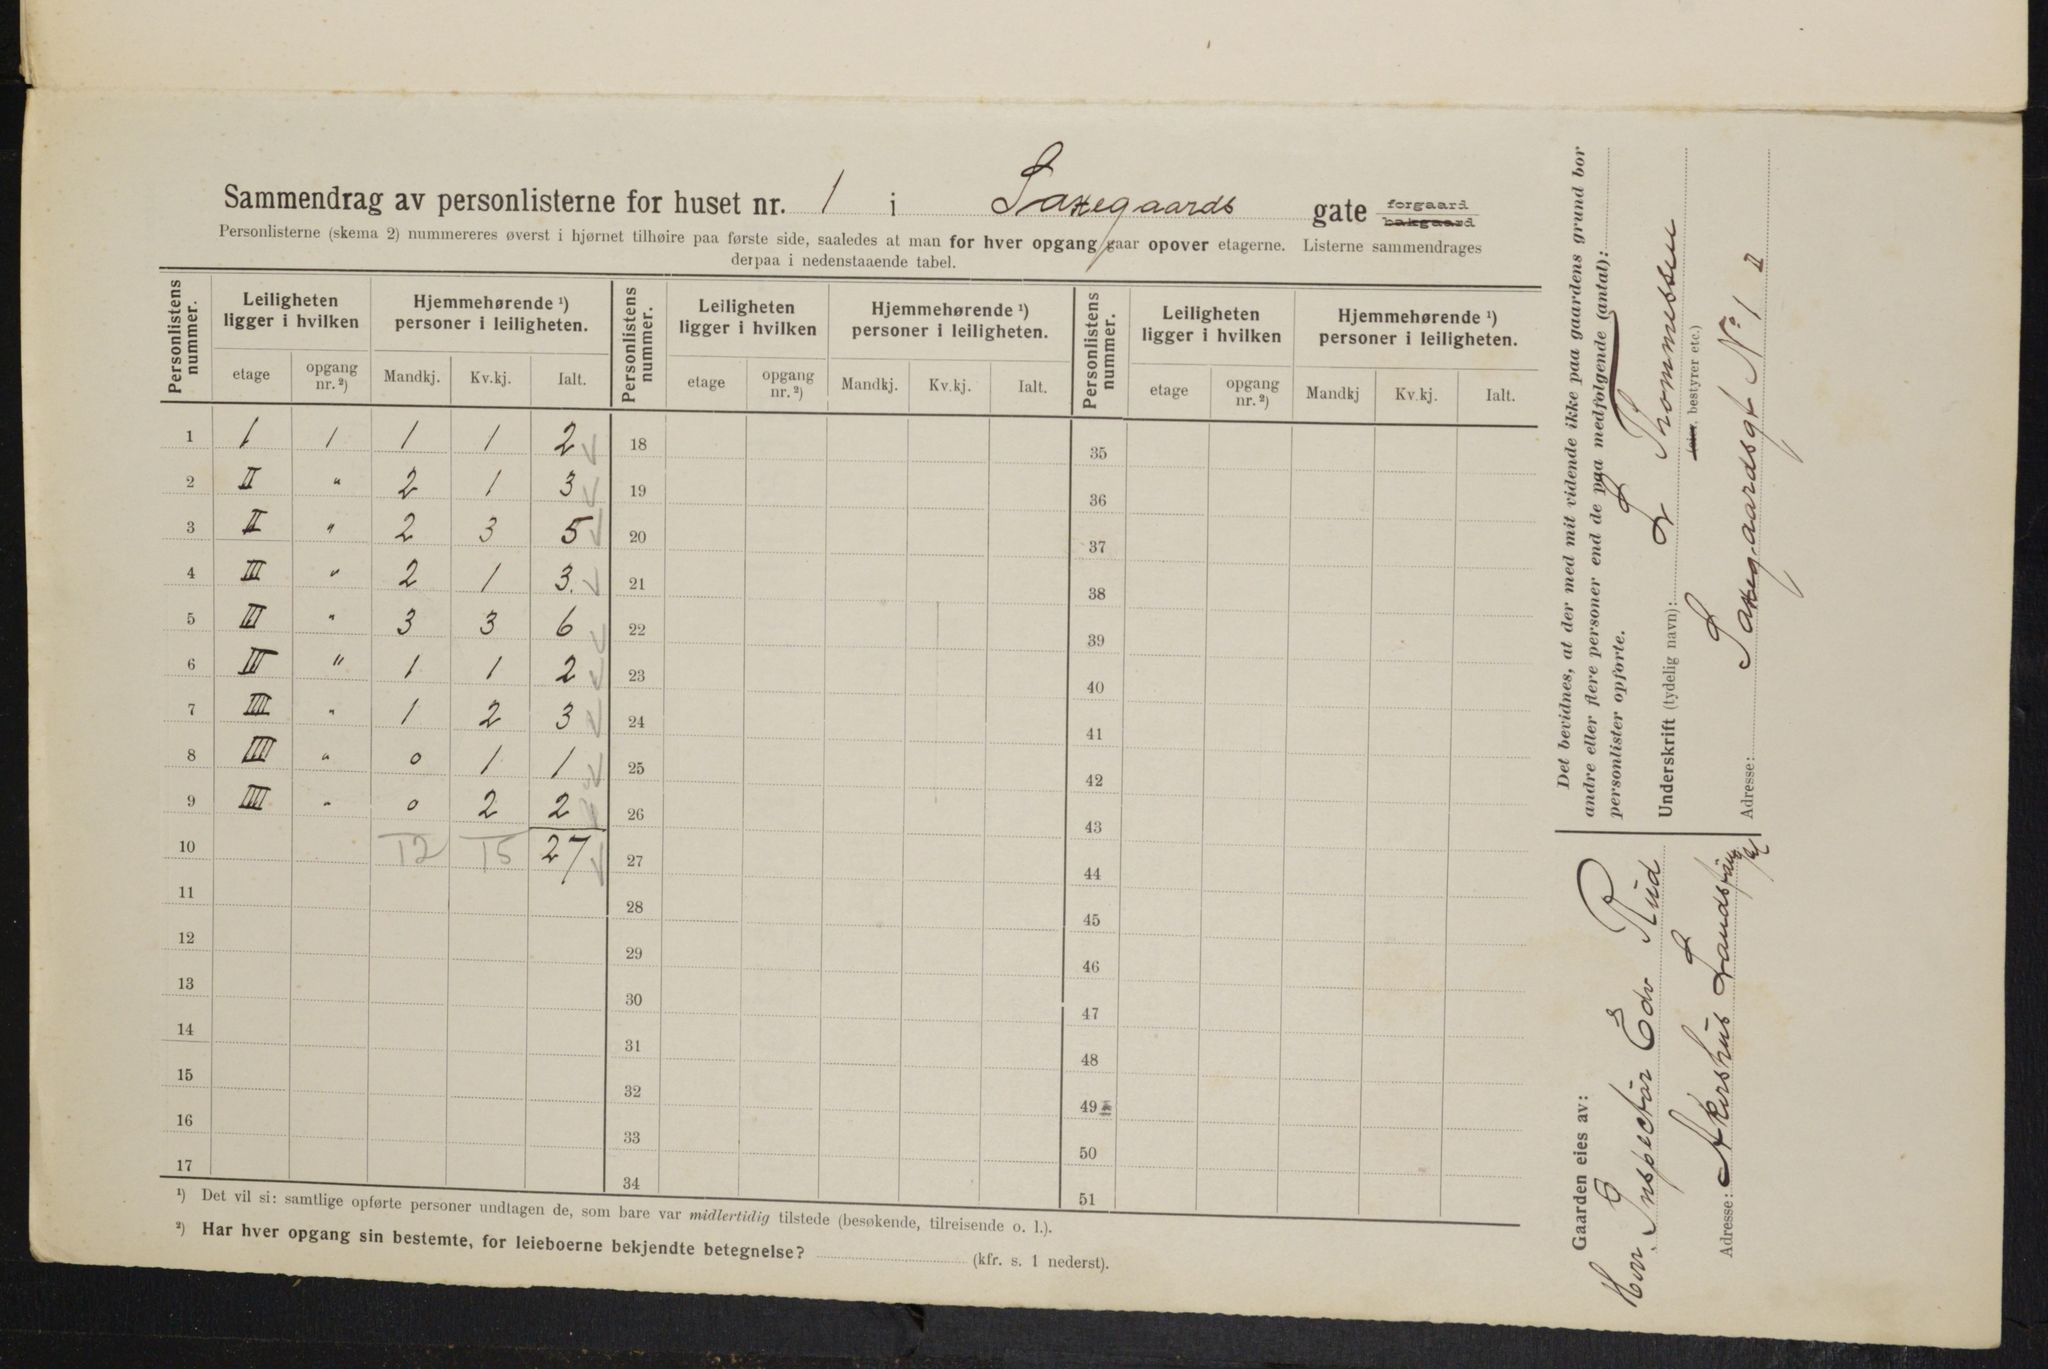 Sammendrag av personlisterne for huset nr. 1 i Saxegaards gate forgaard bakgaard
Personlisterne (skema 2) nummereres øverst i hjørnet tilhøire paa første side, saaledes at man for hver opgang gaar opover etagerne. Listerne sammendrages
derpaa i nedenstaaende tabel.
Personlistens nummer. Leiligheten ligger i hvilken Hjemmehørende ¹) personer i leiligheten. Personlistens nummer. Leiligheten ligger i hvilken Hjemmehørende ¹) personer i leiligheten. Personlistens nummer. Leiligheten ligger i hvilken Hjemmehørende ¹) personer i leiligheten.
etage opgang nr. ²) Mandkj. Kv.kj. Ialt. etage opgang nr. ²) Mandkj. Kv.kj. Ialt. etage opgang nr. ²) Mandkj Kv.kj. Ialt.
1 1 1 1 1 2 18 35
2 II " 2 1 3 19 36
3 II " 2 3 5 20 37
4 III " 2 1 3. 21 38
5 III " 3 3 6 22 39
6 III " 1 1 2 23 40
7 IIII " 1 2 3 24 41
8 IIII " 0 1 1 25 42
9 IIII " 0 2 2 26 43
10 12 15 27 27 44
11 28 45
12 29 46
13 30 47
14 31 48
15 32 49
16 33 50
17 34 51
¹) Det vil si: samtlige opførte personer undtagen de, som bare var midlertidig tilstede (besøkende, tilreisende o. l.).
²) Har hver opgang sin bestemte, for leieboerne bekjendte betegnelse? (kfr. s. 1 nederst).
Det bevidnes, at der med mit vidende ikke paa gaardens grund bor
andre eller flere personer end de paa medfølgende (antal):
personlister opførte.
L Thommessen
Underskrift (tydelig navn):
eier, bestyrer etc.)
Saxegaardsgt No 1 II
Adresse:
Gaarden eies av:
Herr. Inspectör Edv Rud
Adresse: Akershus